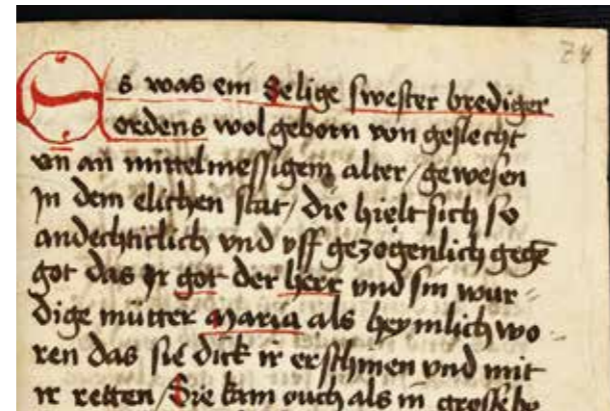 24
Es was ein Selige swester brediger
ordens wol geborn von geslecht
vn an mittelmessigem alter / gewesen
In dem elichen stat / die hielt sich so
andechticlich vnd vff gezogenlich gegē
got das Ir got der herr vnd sin wur⸗
dige mu̇tter Maria als heymlich wo⸗
ren das sie dick ir erschinen vnd mit
ir retten / Sie kam ouch als in grosse